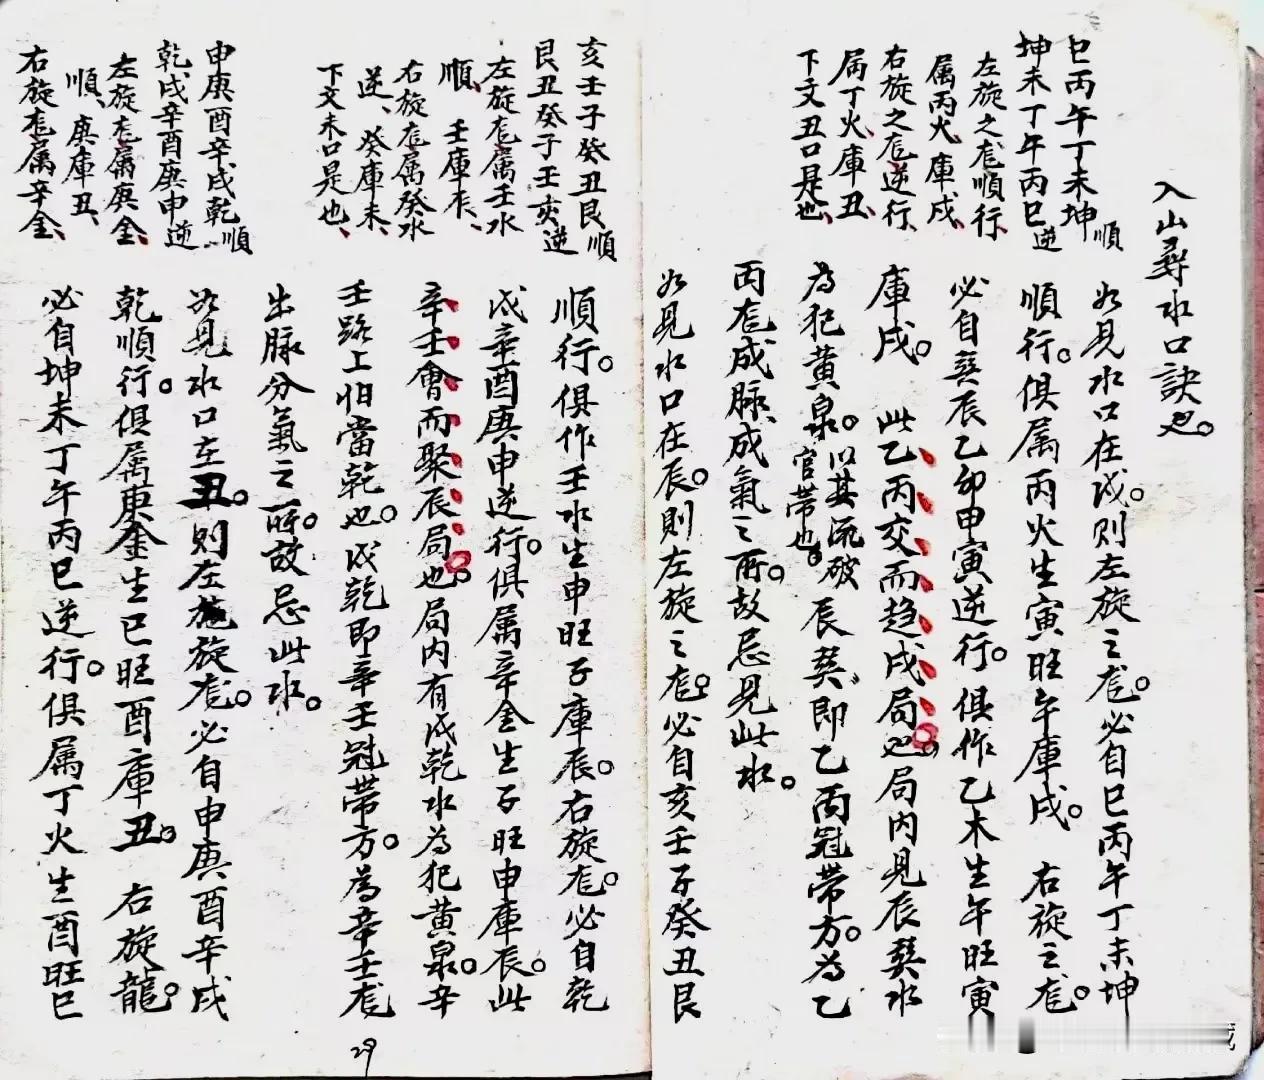 入山尋水口訣也。
巳丙午丁未坤順
坤未丁午丙巳逆
左旋之尨順行、
属丙火、庫戌、
右旋之尨逆行、
属丁火、庫丑、
下文丑口是也、
如見水口在戌。則左旋之尨。必自巳丙午丁未坤
順行。俱属丙火生寅旺午庫戌。右旋之尨。
必自巽辰乙卯申寅逆行。俱作乙木生午旺寅
庫戌。此乙丙交而趋戌局也。局内見辰巽水
為犯黄泉。以其流破官帶也。辰巽即乙丙冠帶方。為乙
丙尨成脉、成氣之所。故忌見此水。
如見水口在辰。則左旋之尨。必自亥壬子癸丑艮
亥壬子癸丑艮順
艮丑癸子壬亥逆
左旋尨属壬水
順、壬庫辰、
右旋尨属癸水
逆、癸庫未、
下文未口是也、
申庚酉辛戌乾順
乾戌辛酉庚申逆
左旋尨属庚金、
順、庚庫丑、
右旋尨属辛金、
順行。俱作壬水生申旺子庫辰。右旋尨。必自乾
戌辛酉庚申逆行。俱属辛金生子旺申庫辰。此
辛壬會而聚辰局也。局内有戌乾水為犯黄泉。辛
壬路上怕當乾也。戌乾即辛壬冠帶方。為辛壬尨
出脉分氣之所。故忌此水。
如見水口在丑。則左旋尨。必自申庚酉辛戌
乾順行。俱属庚金生巳旺酉庫丑。右旋龍。
必自坤未丁午丙巳逆行。俱属丁火生酉旺巳
29